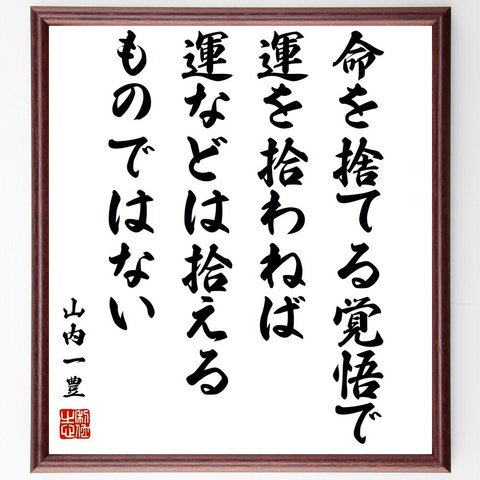 命を捨てる覚悟で
運を拾わねば
運などは拾える
ものではない
山内一豊